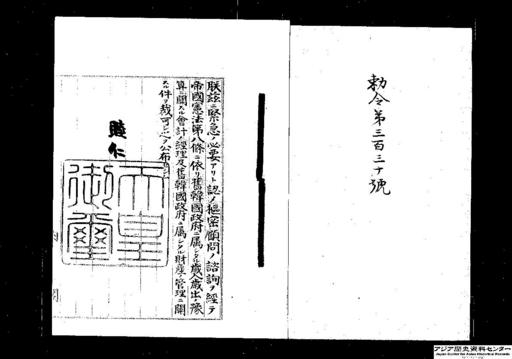 勅令第三百三十號
朕玆ニ緊急ノ必要アリト認メ樞密顧問ノ諮詢ヲ經テ
帝國憲法第八條ニ依リ舊韓國政府ニ屬シタル歲入歲出ノ豫
算ニ關スル會計ノ經理及舊韓國政府ニ屬シタル財產ノ管理ニ關
スル件ヲ裁可シ之ヲ公布セシム
睦仁
天皇
御璽
アジア歴史資料センター
Japan Center for Asian Historical Records